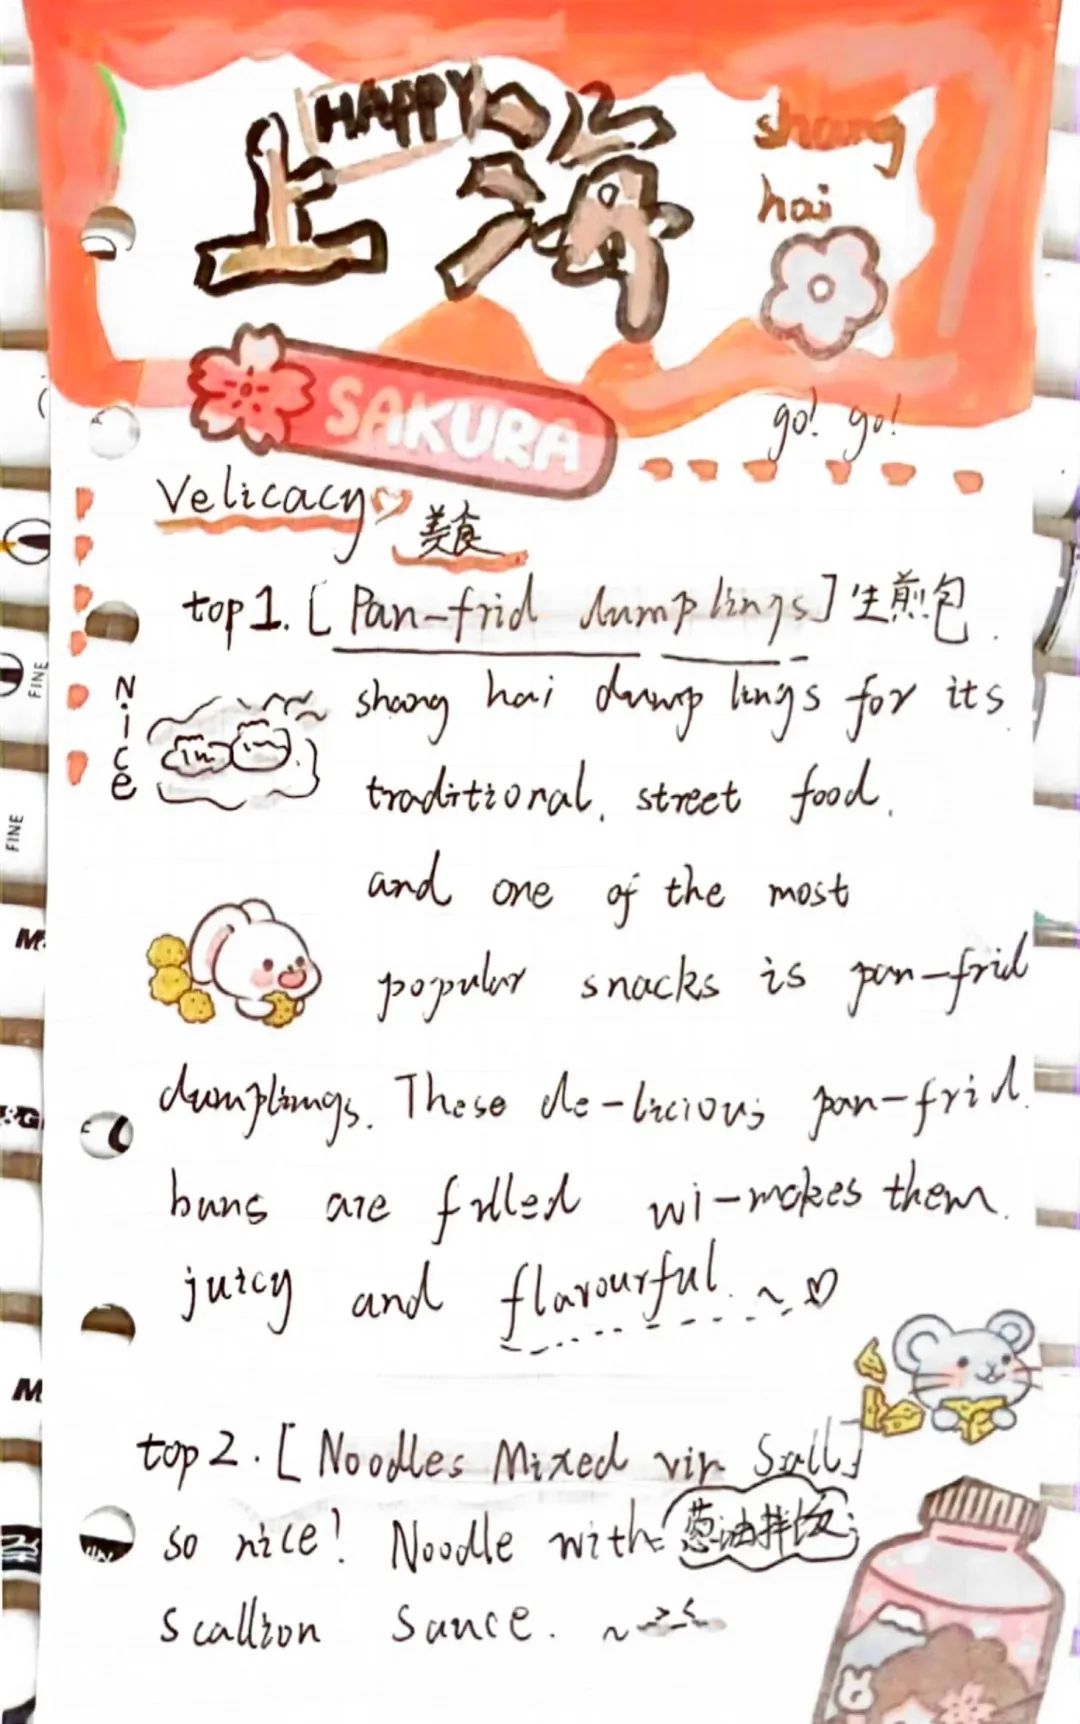 HAPPY
上海
shang
hai
SAKURA
go! go!
Velicacy
美食
top1. [Pan-frid dumplings] 生煎包.
Nice
shang hai dump lings for its
traditional. street food.
and one of the most
popular snacks is pan-frid
dumplings. These de-licious pan-frid.
buns are filled wi-makes them.
juicy and flavourful.
top2. [Noodles Mixed vin Scall]
so nice! Noodle with 葱油拌饭
Scallion Sauce.
FINE
FINE